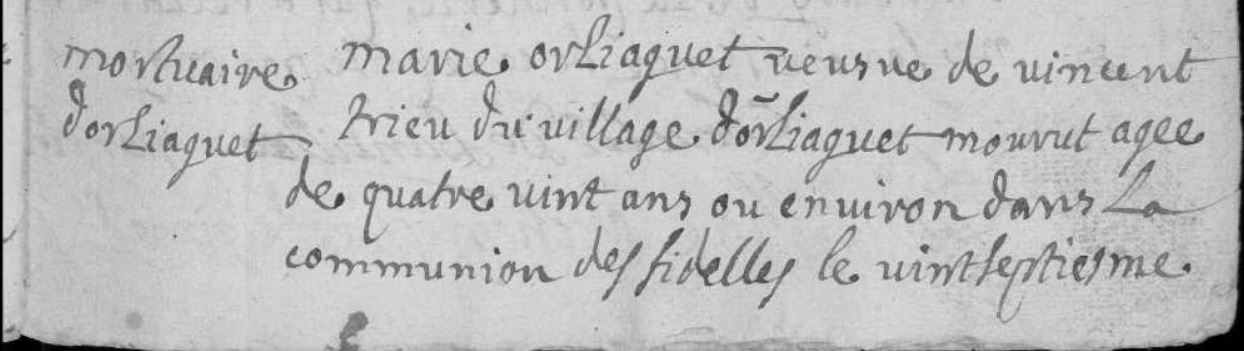 mortuaire marie orliaguet veusve de vincent
dorliaguet trieu du village dorliaguet mourut agee
de quatre vint ans ou environ dans La
communion des fidelles le vintseptiesme